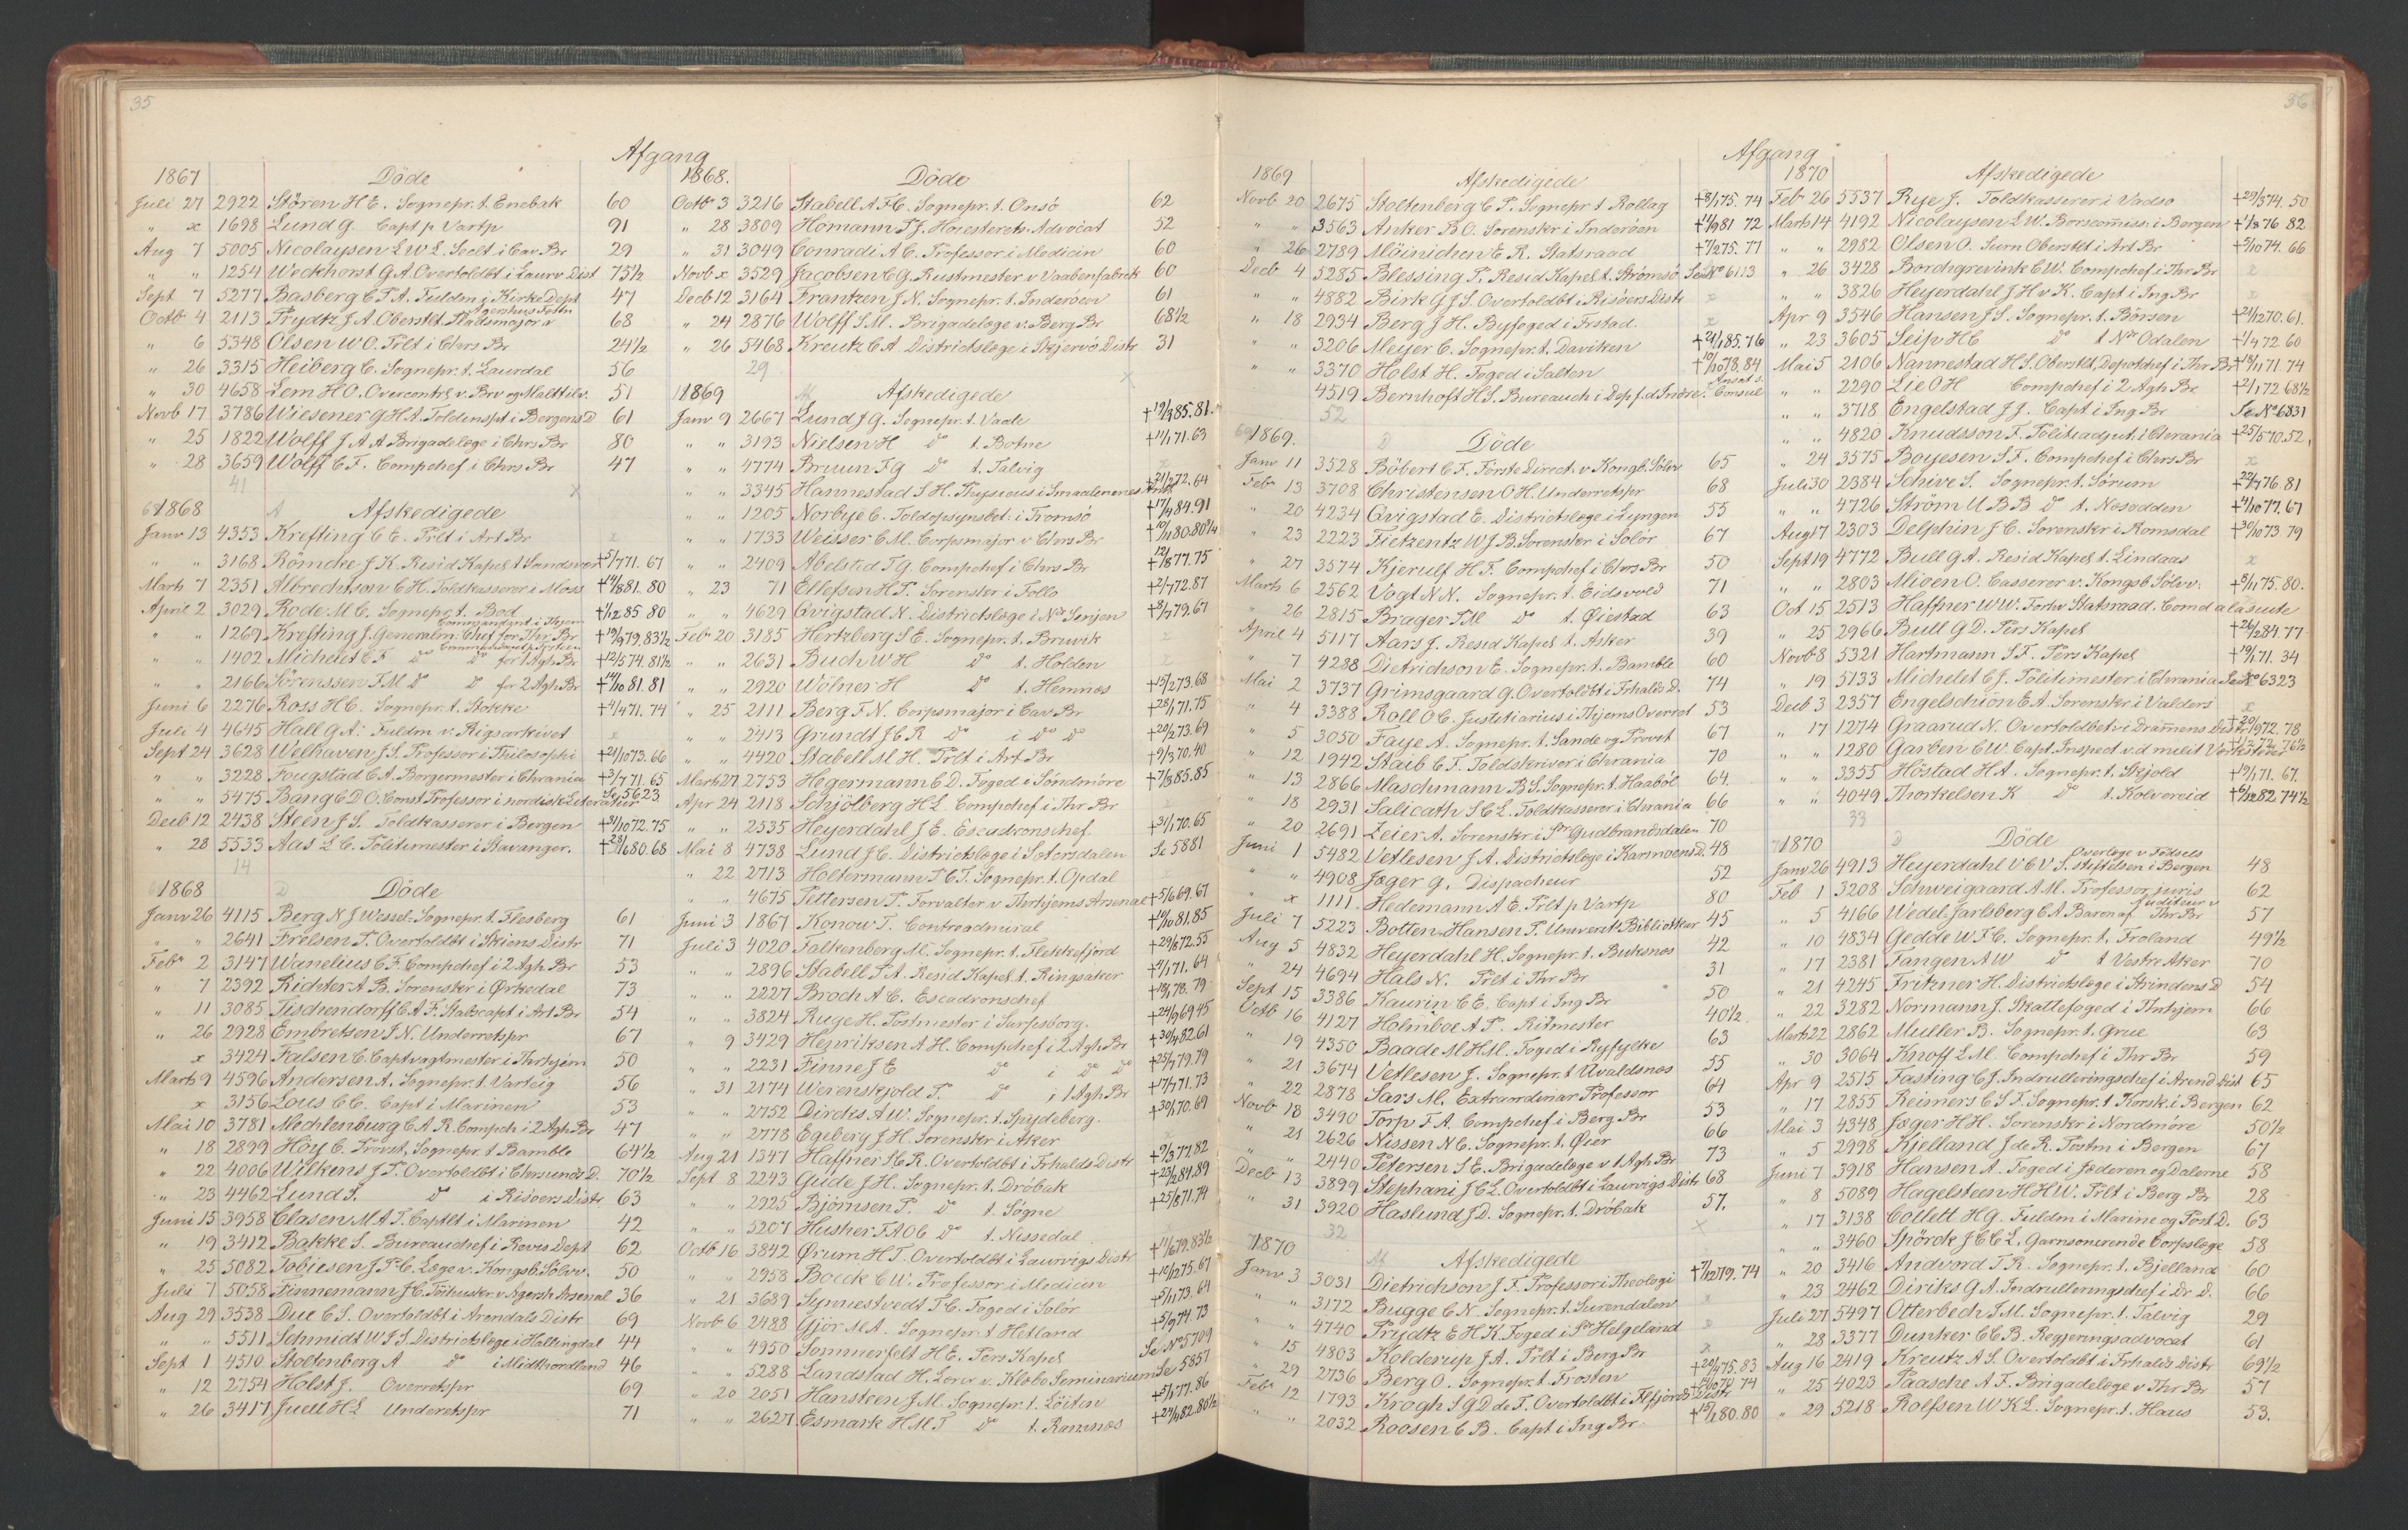 35
Afgang
1867 Döde
Juli 27 2922 Stören H E. Sognepr. t. Enebak 60
" x 1698 Lund G. Capt p Vartp 91
Aug 7 5005 Nicolaysen L W L. Seclt i Cav Br 29
" " 1254 Weckhorst G A. Overtoldbt i Laurv Dist 75½
Sept 7 5277 Basberg C P A. Fuldm i Kirke Dept 47
Octb 4 2113 Prydtz J A. Oberstlt. Pladsmajor v Agershus Fæstn 68
" 6 5348 Olsen W O. Prlt i Chrs Br 24½
" 26 3315 Heiberg C. Sognepr. t. Laurdal 56
" 30 4658 Lem H O. Overcontrl v. Brv og Malttilv. 51
Novb 17 3786 Wiesener G H A. Toldinspt i Bergens D 61
" 25 1822 Wolff J A A Brigadelæge i Chrs Br 80
" 28 3659 Wolff C F. Compchef i Chrs Br 47
41 x
1868 A Afskedigede
Janr 13 4353 Krefting C C. Prlt i Art Br x
" " 3168 Römcke J K. Resid Kapel t Sandsvær †5/7 71. 67
Marts 7 2351 Albrechtson C H. Toldkasserer i Moss †14/6 81. 80
April 2 3029 Rode M C. Sognepr. t. Bod †1/12 85 80
" " 1269 Krefting J. Generalm: Chef for Thr Br Commandant i Thjem †19/9 79. 83½
" " 1402 Michelet C F do do for 1 Agh Br †12/5 74. 81½
" " 2166 Sörenssen F M do do for 2 Agh Br †14/10 81. 81
Juni 6 2276 Ross H C. Sognepr. t. Stokke †4/4 71. 74
Juli 4 4645 Hall G A. Fuldm v. Rigsarkivet x
Sept 24 3628 Welhaven J S. Professor i Philosophi †21/10 73. 66
" " 3228 Fougstad C A. Borgermester i Chrania †3/7 71. 65
" " 5475 Bang C D O. Const Professor i nordisk Literatur Se 5623
Decb 12 2438 Steen J S. Toldkasserer i Bergen †31/10 72. 75
" 28 5533 Aas L C. Politimester i Stavanger. †28/6 80. 68
14
1868 D Döde
Janr 26 4115 Berg N J Wessel. Sognepr. t. Flesberg 61
" " 2641 Frelsen P. Overtoldbt i Skiens Distr 71
Febr 2 3147 Wanelius C F. Compchef i 2 Agh Br 53
" 7 2392 Richter A B. Sorenskr i Ørkedal 73
" 11 3085 Tischendorff C A F. Stabscapt i Art Br 54
" 26 2928 Embretsen J N. Underretspr 67
x 3424 Falsen C. Captvagtmester i Thrhjem 50
Marts 9 4596 Andersen A. Sognepr. t. Varteig 56
x 3156 Lous C C. Capt i Marinen 53
Mai 10 3781 Mechlenburg C A R. Compch i 2 Agh Br 47
" 18 2899 Höy C. Provst, Sognepr. t Bamble 64½
" 22 4006 Wilkens J P. Overtoldbt i Chrsunds D. 70½
" 23 4462 Lund P. do i Risøers Distr 63
Juni 15 3958 Clasen M A T. Captlt i Marinen 42
" 19 3412 Bakke S. Bureauchef i Revis Dept 62
" 25 5082 Tobiesen J P C. Læge v. Kongsb. Sölvv. 50
Juli 7 5058 Finnemann J C. Töihuskr. v Agersh Arsenal 36
Aug 29 3538 Due C S. Overtoldbt i Arendals Distr 69
" " 5511 Schmidt W P S. Districtslæge i Hallingdal 44
Sept 1 4510 Stoltenberg A do i Midthordland 46
" 12 2754 Holst J. Overretspr 69
" 26 3417 Juell H L Underetspr 71
1868. Döde
Octb 3 3216 Stabell A F C. Sognepr. t. Onsö 62
" 28 3809 Homann P J. Høiesterets Advocat 52
" 31 3049 Conradi A C. Professor i Medicin 60
Novb x 3529 Jacobsen C G. Rustmester v Vaabenfabrik 60
Decb 12 3164 Frantzen J N. Sognepr. t. Inderöen 61
" 24 2876 Wolff S M. Brigadelæge v. Berg Br 68½
" 26 5468 Kreutz C A. Districtslæge i Skjervö Distr 31
29 x
1869 Af Afskedigede
Janr 9 2667 Lund J G. Sognepr. t. Vadle †19/3 85. 81.
" " 3193 Nielsen H do t. Botne †11/1 71. 63
" " 4774 Bruun F G do t. Talvig x
" " 3345 Hannestad S H. Physicus i Smaalenenes Amt †21/2 72. 64
" " 1205 Norbye C. Toldopsynsbet. i Tromsö †17/4 84. 91
" " 1733 Weisser C M. Corpsmajor v Chrs Br †10/1 80 80¼
" " 2409 Abelsted T G. Compchef i Chrs Br †12/8 77. 75
" 23 71 Ellefsen H P. Sorenskr i Follo †2/7 72. 87
" " 4629 Qvigstad N. Districtslæge i Ndr Senjen †8/7 79. 67
Feb 20 3185 Hertzberg S E. Sognepr. t. Bruvik x
" " 2631 Buch W H do t. Holden x
" " 2920 Wölner H do t. Hemnæs †15/2 73. 68
" 25 2111 Berg F N. Corpsmajor i Cav Br †28/1 71. 75
" " 2413 Grundt J C R do i do do †22/2 73. 69
" " 4420 Stabell M H. Prlt i Art Br †9/3 70. 40
Marts 27 2753 Hegermann E D. Foged i Söndmöre †7/3 85. 85
Apr 24 2118 Schjölberg H L Compchef i Thr Br x
" " 2535 Heyerdahl J E. Escadronschef. †31/1 70. 65
Mai 8 4738 Lund J C. Districtslæge i Sætersdalen Se 5881
" 22 2713 Holtermann P C T. Sognepr. t. Opdal x
" " 4675 Pettersen P. Forvalter v Thrhjems Arsenal †5/6 69. 67
Juni 3 1867 Konow T. Contreadmiral †10/10 81. 85
Juli 3 4020 Falkenberg M. Sognepr. t. Flekkefjord †29/6 72. 55
" " 2896 Stabell P A. Resid Kapel t. Ringsaker †9/1 71. 64
" " 2227 Broch A C. Escadronschef †18/1 78. 79
" " 3824 Ruge H. Postmester i Sarpsborg. †24/9 69 45
" 9 3429 Henriksen A H. Compchef i 2 Agh Br †30/4 82. 61
" " 2231 Finne J E do i do do †25/1 79. 79
" 31 2174 Werenskjold P. do i 1 Agh Br †17/4 71. 73
" " 2752 Dircks A W. Sognepr. t. Spydeberg. †30/1 70. 69
" " 2778 Egeberg J H. Sorenskr i Aker x
Aug 21 1347 Haffner H R. Overtoldbt i Frhalds Distr †9/3 77. 82
Sept 8 2243 Gude J H. Sognepr. t. Dröbak †23/2 84. 89
" " 2925 Bjørnsen P. do t. Søgne †25/8 71. 74
" " 5207 Husher F A O C do t. Nissedal x
Octb 16 3842 Ørum H T. Overtoldbt i Laurvigs Distr †11/6 79. 83½
" " 2958 Boeck C W. Professor i Medicin †10/12 75. 67
" 21 3689 Synnestvedt P C. Foged i Solör †5/11 73. 64
Novb 6 2488 Gjör M A. Sognepr. t. Hetland †5/9 74. 73
" " 4950 Sommerfelt H E. Pers Kapel Se No 5709
" " 5288 Landstad H. Lærer v. Klæbo Seminarium Se 5857
" 20 2051 Hansteen J M. Sognepr. t. Löiten †5/1 77. 86
" " 2627 Esmark H M T do t. Ramnæs †24/4 82. 80½
36
Afgang
1869 Afskedigede
Novb 20 2675 Stoltenberg C P. Sognepr t Rollag †8/1 75. 74
" " 3563 Anker B O. Sorenskr i Inderøen †14/9 81 72
" 26 2789 Möinichen E R. Statsraad †7/2 75. 77
Decb 4 5285 Blessing P. Resid Kapel t. Strømsö Se No 6113
" " 4882 Birk G J S. Overtoldbt i Risöers Distr x
" 18 2934 Berg J H. Byfoged i Frstad. x
" " 3206 Meyer C. Sognepr. t. Daviken †21/1 85. 76
" " 3370 Holst H. Foged i Salten †10/10 78. 84
4519 Bernhoft H S. Bureauch i Dep f. d Indre. Ansat s. Consul
52
1869. D Döde
Janr 11 3528 Böbert C F. Förste Direct. v Kongb. Sölvv 65
Febr 13 3708 Christensen O H. Underretspr 68
" 20 4234 Qvigstad E. Districtslæge i Lyngen 55
" 23 2223 Fietzentz W J B. Sorenskr i Solör 67
" 27 3574 Kjerulf H F. Compchef i Chrs Br 50
Marts 6 2562 Vogt N N. Sognepr. t. Eidsvold 71
" 26 2815 Brager P M do t. Øiestad 63
April 4 5117 Aars J. Resid Kapel t. Asker 39
" 7 4238 Dietrichson E. Sognepr. t. Bamble 60
Mai 2 3737 Grimsgaard G. Overtoldbt i Frhalds D. 74
" 4 3388 Roll O C. Justitiarius i Thjems Overret 53
" 5 3050 Faye A. Sognepr. t. Sande og Provst 67
" 12 1942 Staib C F. Toldskriver i Chrania 70
" 13 2866 Maschmann B S. Sognepr. t. Haaböl 64.
" 18 2931 Salicath S C L. Toldkasserer i Chrania 66
" 20 2691 Zeier A. Sorenskr i Sdr Gudbrandsdalen 70
Juni 1 5482 Vetlesen J A. Districtslæge i Karmøens D. 48
" " 4908 Jæger G. Dispacheur 52
" x 1111. Hedemann A E. Prlt p Vartp 80
Juli 7 5223 Botten-Hansen P. Universt. Bibliothkr 45
Aug 5 4832 Heyerdahl H. Sognepr. t. Buksnæs 42
" 24 4694 Hals N. Prlt i Thr Br 31
Sept 15 3386 Kaurin C E. Capt i Ing Br 50
Octb 16 4127 Holmboe A P. Ritmester 40½
" 19 4350 Baade M H M. Foged i Ryfylke 63
" 21 3674 Vetlesen J. Sognepr. t Avaldsnæs 55
" 22 2878 Sars M. Extraordinær Professor 64
Novb 18 3490 Torp F A. Compchef i Berg Br 53
" 21 2626 Nissen N C. Sognepr. t. Øier 66
" " 2440 Petersen S E. Brigadelæge v 1 Agh Br 73
Decb 13 3899 Stephani J C L. Overtoldbt i Laurvigs Distr 68
" 31 3920 Haslund J D. Sognepr. t. Dröbak 57.
32 x
1870 Af Afskedigede
Janr 3 3031 Dietrichson J F. Professor i Theologi †7/12 79. 74
" " 3172 Bugge C N. Sognepr. t. Surendalen x
" " 4740 Prydtz E H K. Foged i Sdr Helgeland x
" 15 4803 Kolderup J A. Prlt i Berg Br x
" 29 2736 Berg O. Sognepr. t. Frosten †22/4 75. 83
Febr 12 1793 Kragh S G D de F. Overtoldbt i Flfjords Distr
" " 2032 Roosen C B. Capt i Ing Br. †15/1 80. 80
1870 Afskedigede
Feb 26 5537 Rye J. Toldkasserer i Vadsö †29/3 74. 50
Marts 14 4192 Nicolaysen L W. Börscommiss. i Bergen †1/3 76 82
" " 2982 Olsen O. Surn Oberstlt i Art Br †5/10 74. 66
" 26 3428 Borchgrevink C W. Compchef i Thr Br x
" " 3826 Heyerdahl J H v K. Capt i Ing Br x
Apr 9 3546 Hansen J S. Sognepr. t. Börsen †21/12 70. 61.
" 23 3605 Seip H C do t Ndr Odalen †1/4 72 60
Mai 5 2106 Nannestad H S. Oberstlt, Depotchef i Thr Br †18/11 71 74
" " 2290 Lie O H Compchef i 2 Agh Br †21/1 72 68½
" " 3718 Engelstad J J. Capt i Ing Br Se No 6831
" " 4820 Knudsson F. Politiadjut. i Chrania †25/5 70. 52.
" 24 3575 Boyesen S F. Compchef i Chrs Br x
Juli 30 2384 Schive S. Sognepr. t. Sörum †22/4 76. 81
" " 4726 Ström U B B do t. Næsodden †4/10 77. 67
Aug 17 2303 Delphin J C. Sorenskr i Romsdal †30/10 73 79
Sept 19 4772 Bull G A. Resid Kapel t. Lindaas x
" " 2803 Moen O. Casserer v. Kongsb Sölvv. †9/11 75. 80.
Oct 15 2513 Haffner W W. Forhv Statsraad. Comd a la suite
" 25 2966 Bull G D. Pers Kapel †26/2 84. 77
Novb 8 5321 Hartmann S F. Pers Kapel †19/1 71. 34
" 19 5133 Michelet C J. Politimester i Chrania Se No 6323
Decb 3 2357 Engelschiön E A. Sorenskr i Valders x
" 17 1274 Graarud N. Overtoldbet. i Drammens Distr †20/1 72. 78
" " 1280 Garben C W. Capt. Inspect v. d milit
" " 3355 Höstad H A. Sognepr. t. Skjold †19/1 71. 67.
" " 4049 Thorkelsen K do t. Kolvereid †6/12 82 74½
33
1870 D Döde
Janr 26 4913 Heyerdahl V C V S. Overlæge v Födselsstiftelsen i Bergen 48
Feb 1 3208 Schweigaard A M. Professor juris 62
" 5 4166 Wedel-Jarlsberg C A Baron af Auditeur v Thr Br 57
" 10 4834 Gedde W F C. Sognepr. t. Froland 49½
" 17 2381 Tangen A W do t Vestre Aker 70
" 21 4245 Fritzner H. Districtslæge i Strindens D 54
" 22 3282 Normann J. Skattefoged i Thrhjem 66
Marts 22 2862 Müller B. Sognepr. t. Grue 63
" 30 3064 Knoff L M. Compchef i Thr Br 59
Apr 9 2515 Fasting C J. Indrulleringschef i Arend Dist 65
" 17 2855 Reimers C S F. Sognepr. t. Korsk. i Bergen 62
Mai 3 4348 Jæger H H. Sorenskr i Nordmöre 50½
" 5 2998 Kjelland J de R. Postm i Bergen 67
Juni 7 3918 Hansen A. Foged i Jæderen og Dalerne 58
" 8 5089 Hagelsteen H H W. Prlt i Berg Br 28
" 17 3138 Collett H G. Fuldm i Marine og Post D. 63
" " 3460 Spörck J C C L. Garnsonerende Corpslæge 58
" 20 3416 Andvord T R. Sognepr. t. Bjelland 60
" 23 2462 Diriks G A. Indrulleringschef i Dr D. 66
Juli 27 5497 Otterbech S M. Sognepr. t. Talvig 29
" 28 3377 Dunker C C B. Regjeringsadvocat 61
Aug 16 2419 Kreutz A S. Overtoldbt i Frhalds Distr 69½
" 25 4023 Paasche A F. Brigadelæge v Thr Br 57
" 29 5218 Rolfsen W K L. Sognepr. t. Haus 53.